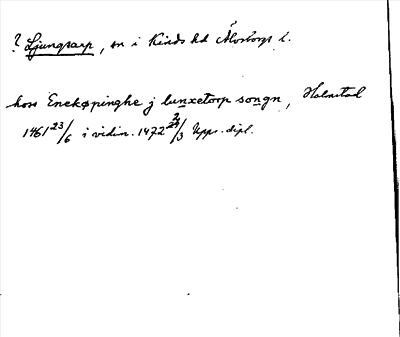 ? Ljungsarp, sn i Kinds hd Älvsborgs l.
hoss Enekøpinghe j lunxetorp songn, Halmstad
1461 23/6 i vidin. 1472 2/3 Upps. dipl.